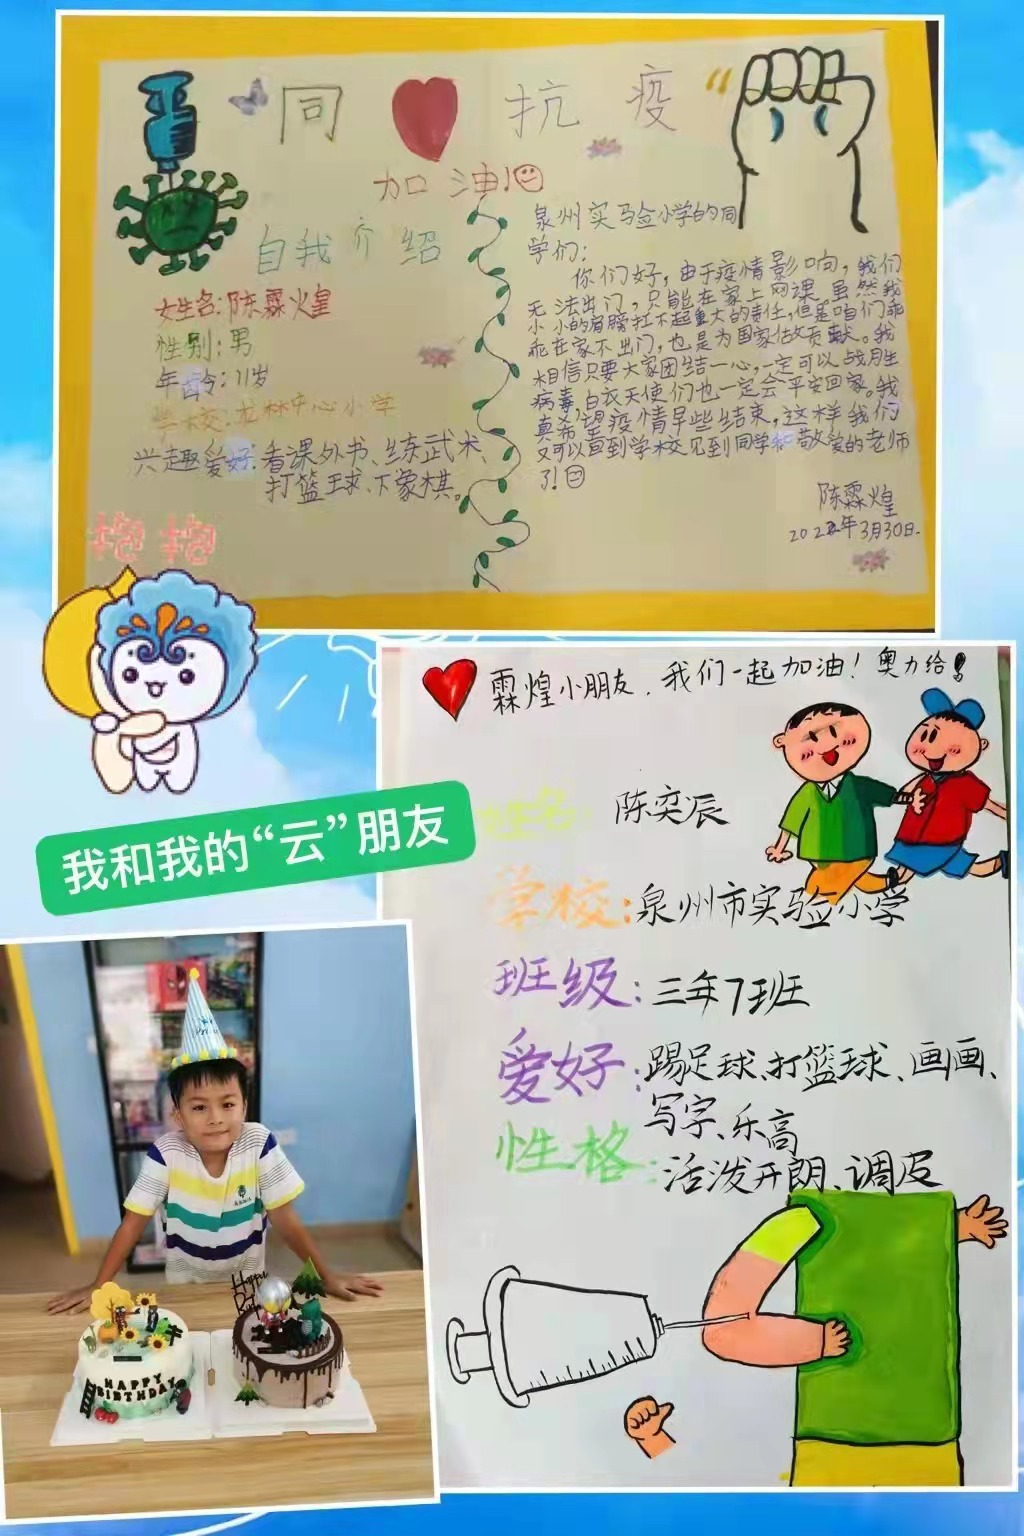 同 抗 疫
加 油！
自我介绍
女生名：陈霖火皇
性别：男
年龄：11岁
学校：龙林中心小学
兴趣爱好：看课外书、练武术、
打篮球、下象棋。
泉州实验小学的同
学们：
你们好，由于疫情影响，我们
无法出门，只能在家上网课。虽然我
小小的肩膀扛不起重大的责任，但是咱们乖
乖在家不出门，也是为国家做贡献。我
相信只要大家团结一心，一定可以战胜
病毒，白衣天使们也一定会平安回家。我
真希望疫情早些结束，这样我们
又可以直到学校见到同学和敬爱的老师
了！
陈霖煌
2022年3月30日.
抱抱
霖煌小朋友，我们一起加油！奥力给！
姓名： 陈奕辰
学校：泉州市实验小学
班级：三年7班
爱好：踢足球、打篮球、画画、
写字、乐高
性格：活泼开朗、调皮
我和我的“云”朋友
Happy
HAPPY
BIRTHDAY